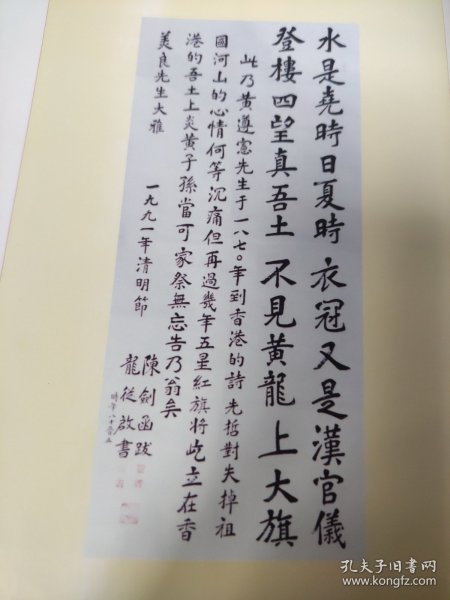 水是堯時日夏時 衣冠又是漢官儀
登樓四望真吾土 不見黃龍上大旗
此乃黃遵憲先生于一八七〇年到香港的詩 先哲對失掉祖
國河山的心情何等沉痛但再過幾年五星紅旗將屹立在香
港的吾土上炎黃子孫當可家祭無忘告乃翁矣
美良先生大雅
一九九一年清明節
陳劍函跋
龍從啟書
時年八十
孔夫子旧书网
www.kongfz.com